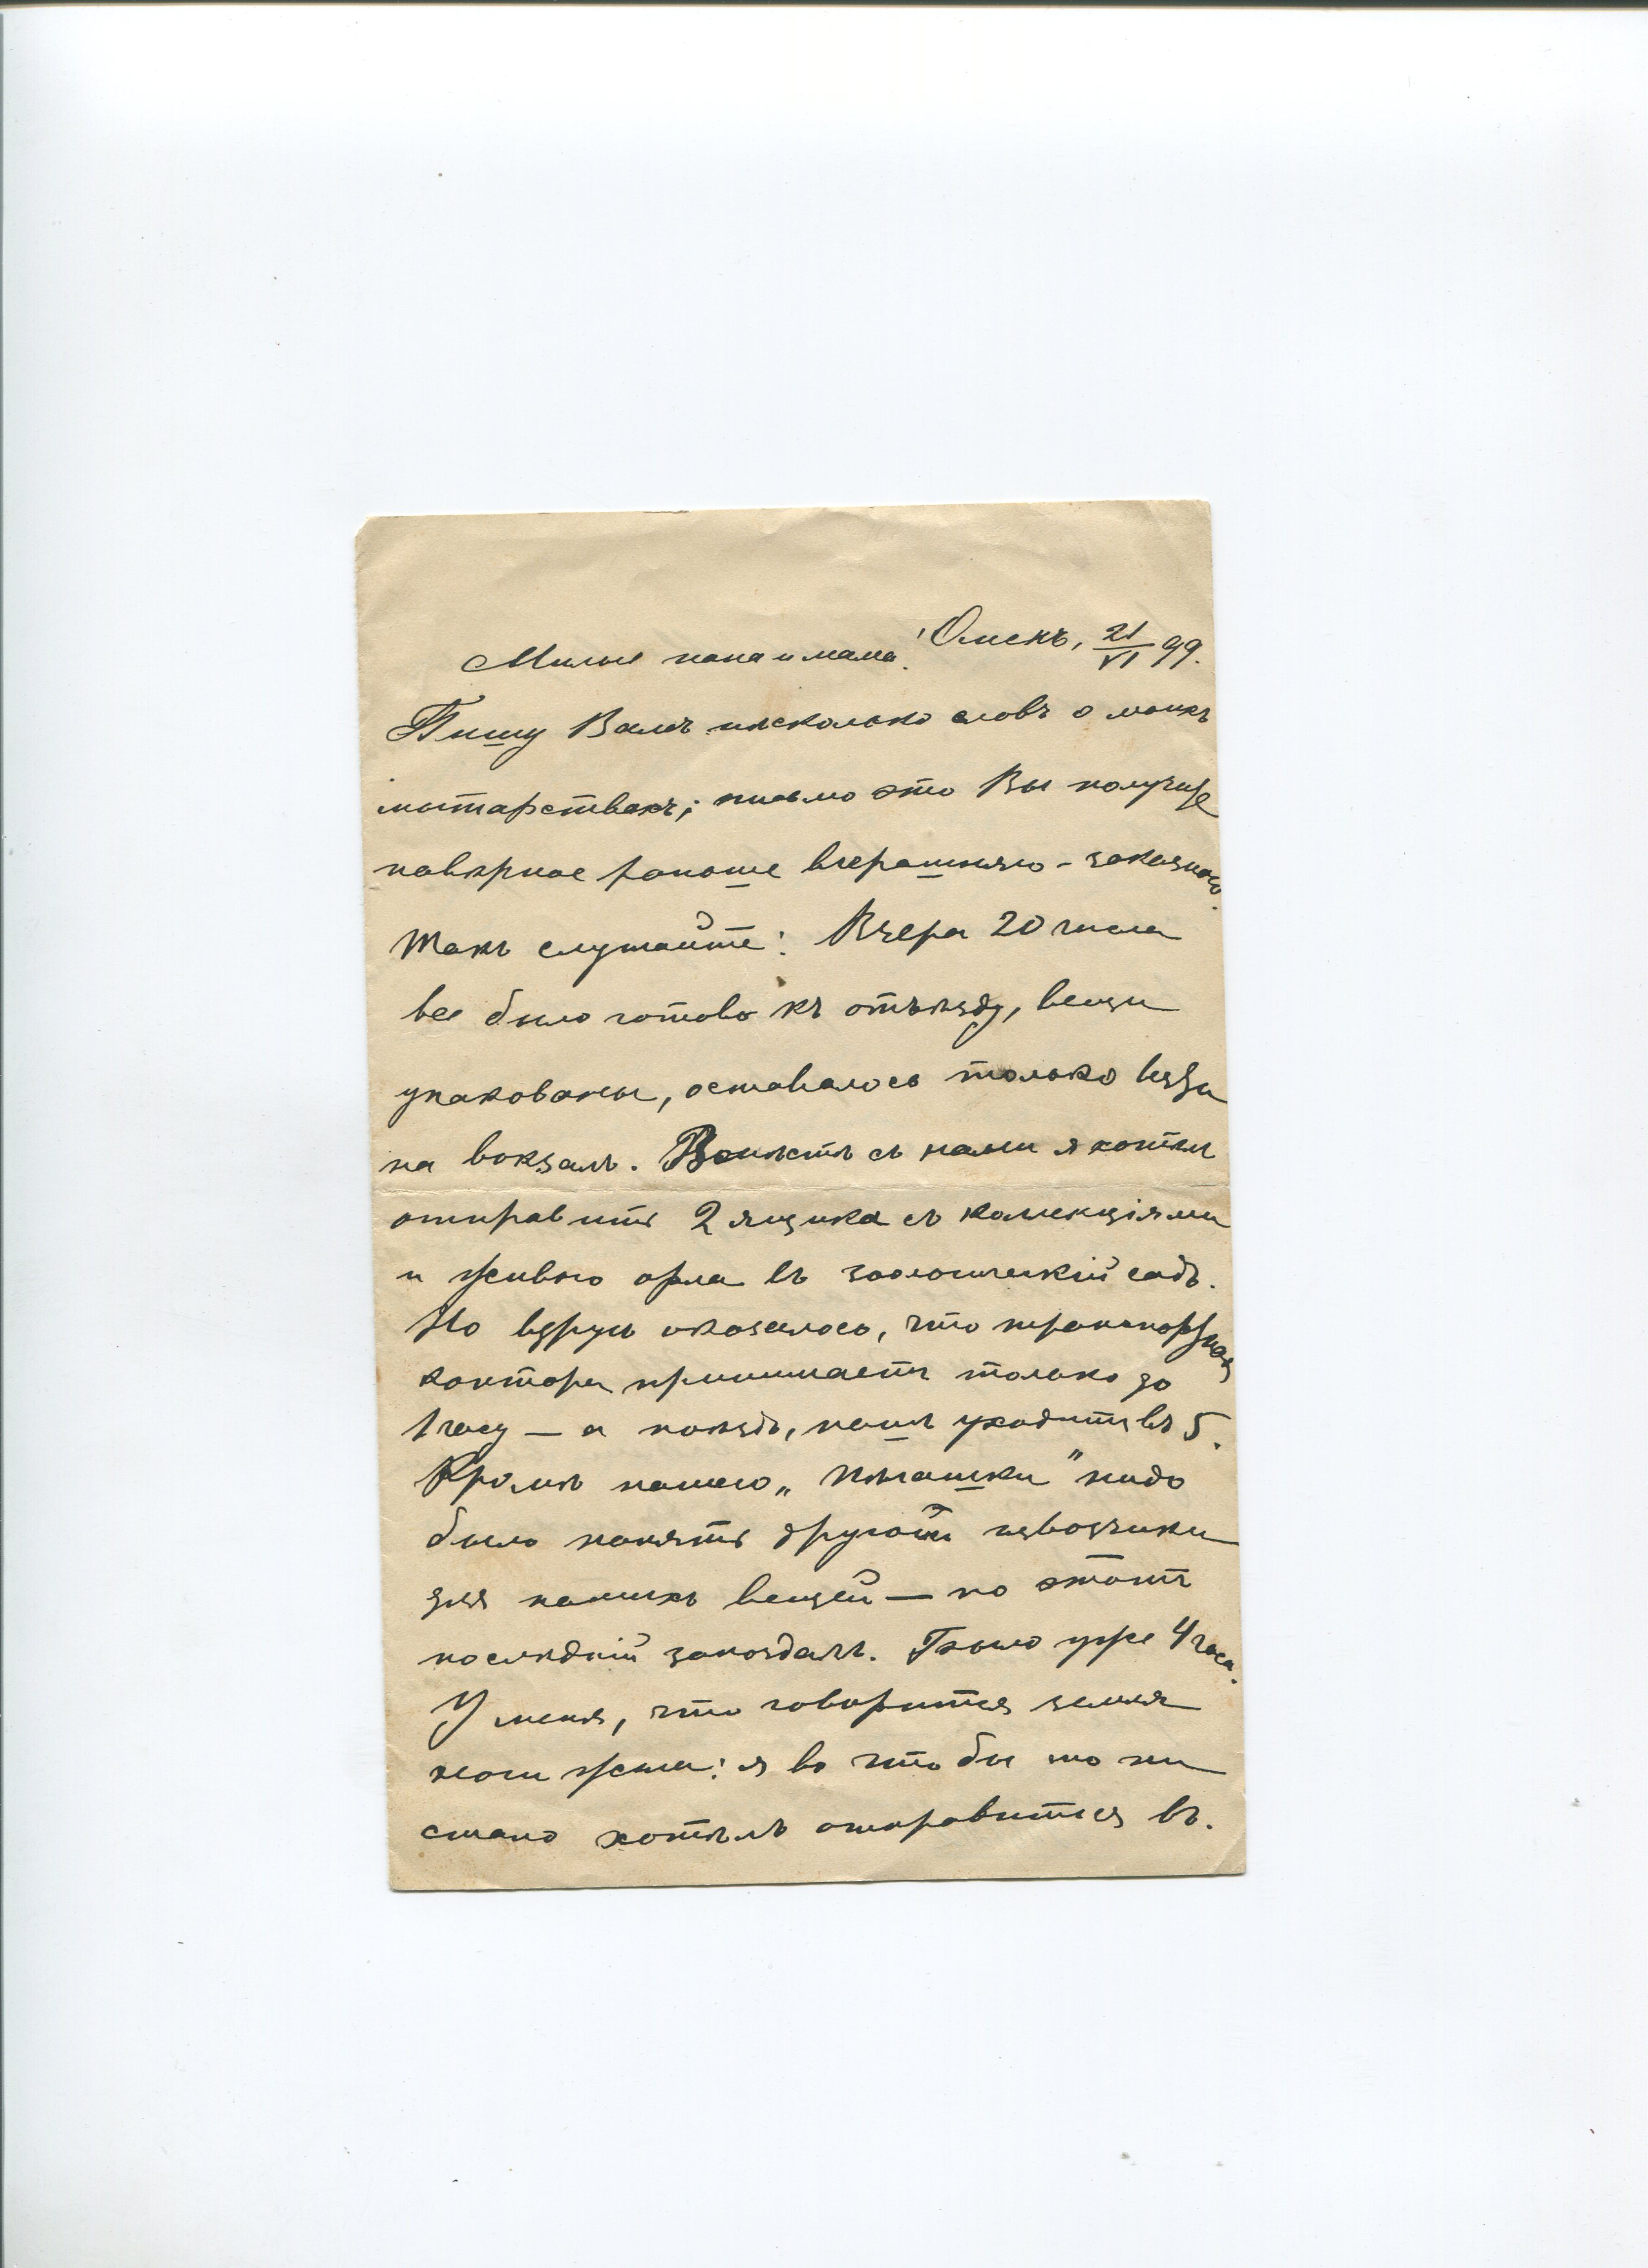 Омскъ, 21/VI 99.
Милые папа и мама!
Пишу Вамъ нѣсколько словъ о моихъ
мытарствахъ; письмо это Вы получите
навѣрное раньше вчерашняго - заказного.
Такъ слушайте: Вчера 20 числа
все было готово къ отъѣзду, вещи
упакованы, оставалось только везти
на вокзалъ. Вмѣстѣ съ нами я хотѣлъ
отправить 2 ящика съ коллекціями
и живого орла въ зоологическій садъ.
Но вдругъ оказалось, что транспортная
контора принимаетъ только до
1 часу — а поѣздъ, нашъ уходитъ въ 5.
Кромѣ нашего „Пѣгашки" надо
было нанять другого извозчика
для нашихъ вещей — но этотъ
послѣдній запоздалъ. Было уже 4 часа.
У меня, что говорится земля
ноги жгла: я во что бы то ни
стало хотѣлъ отправиться въ.